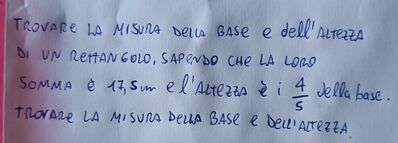 TROVARE LA MISURA DELLA BASE e dell'ALTEZZA
DI UN RETTANGOLO, SAPENDO CHE LA LORO
SOMMA è 17,5 cm e l'ALTEZZA è i 4/5 della base.
TROVARE LA MISURA DELLA BASE E DELL'ALTEZZA.